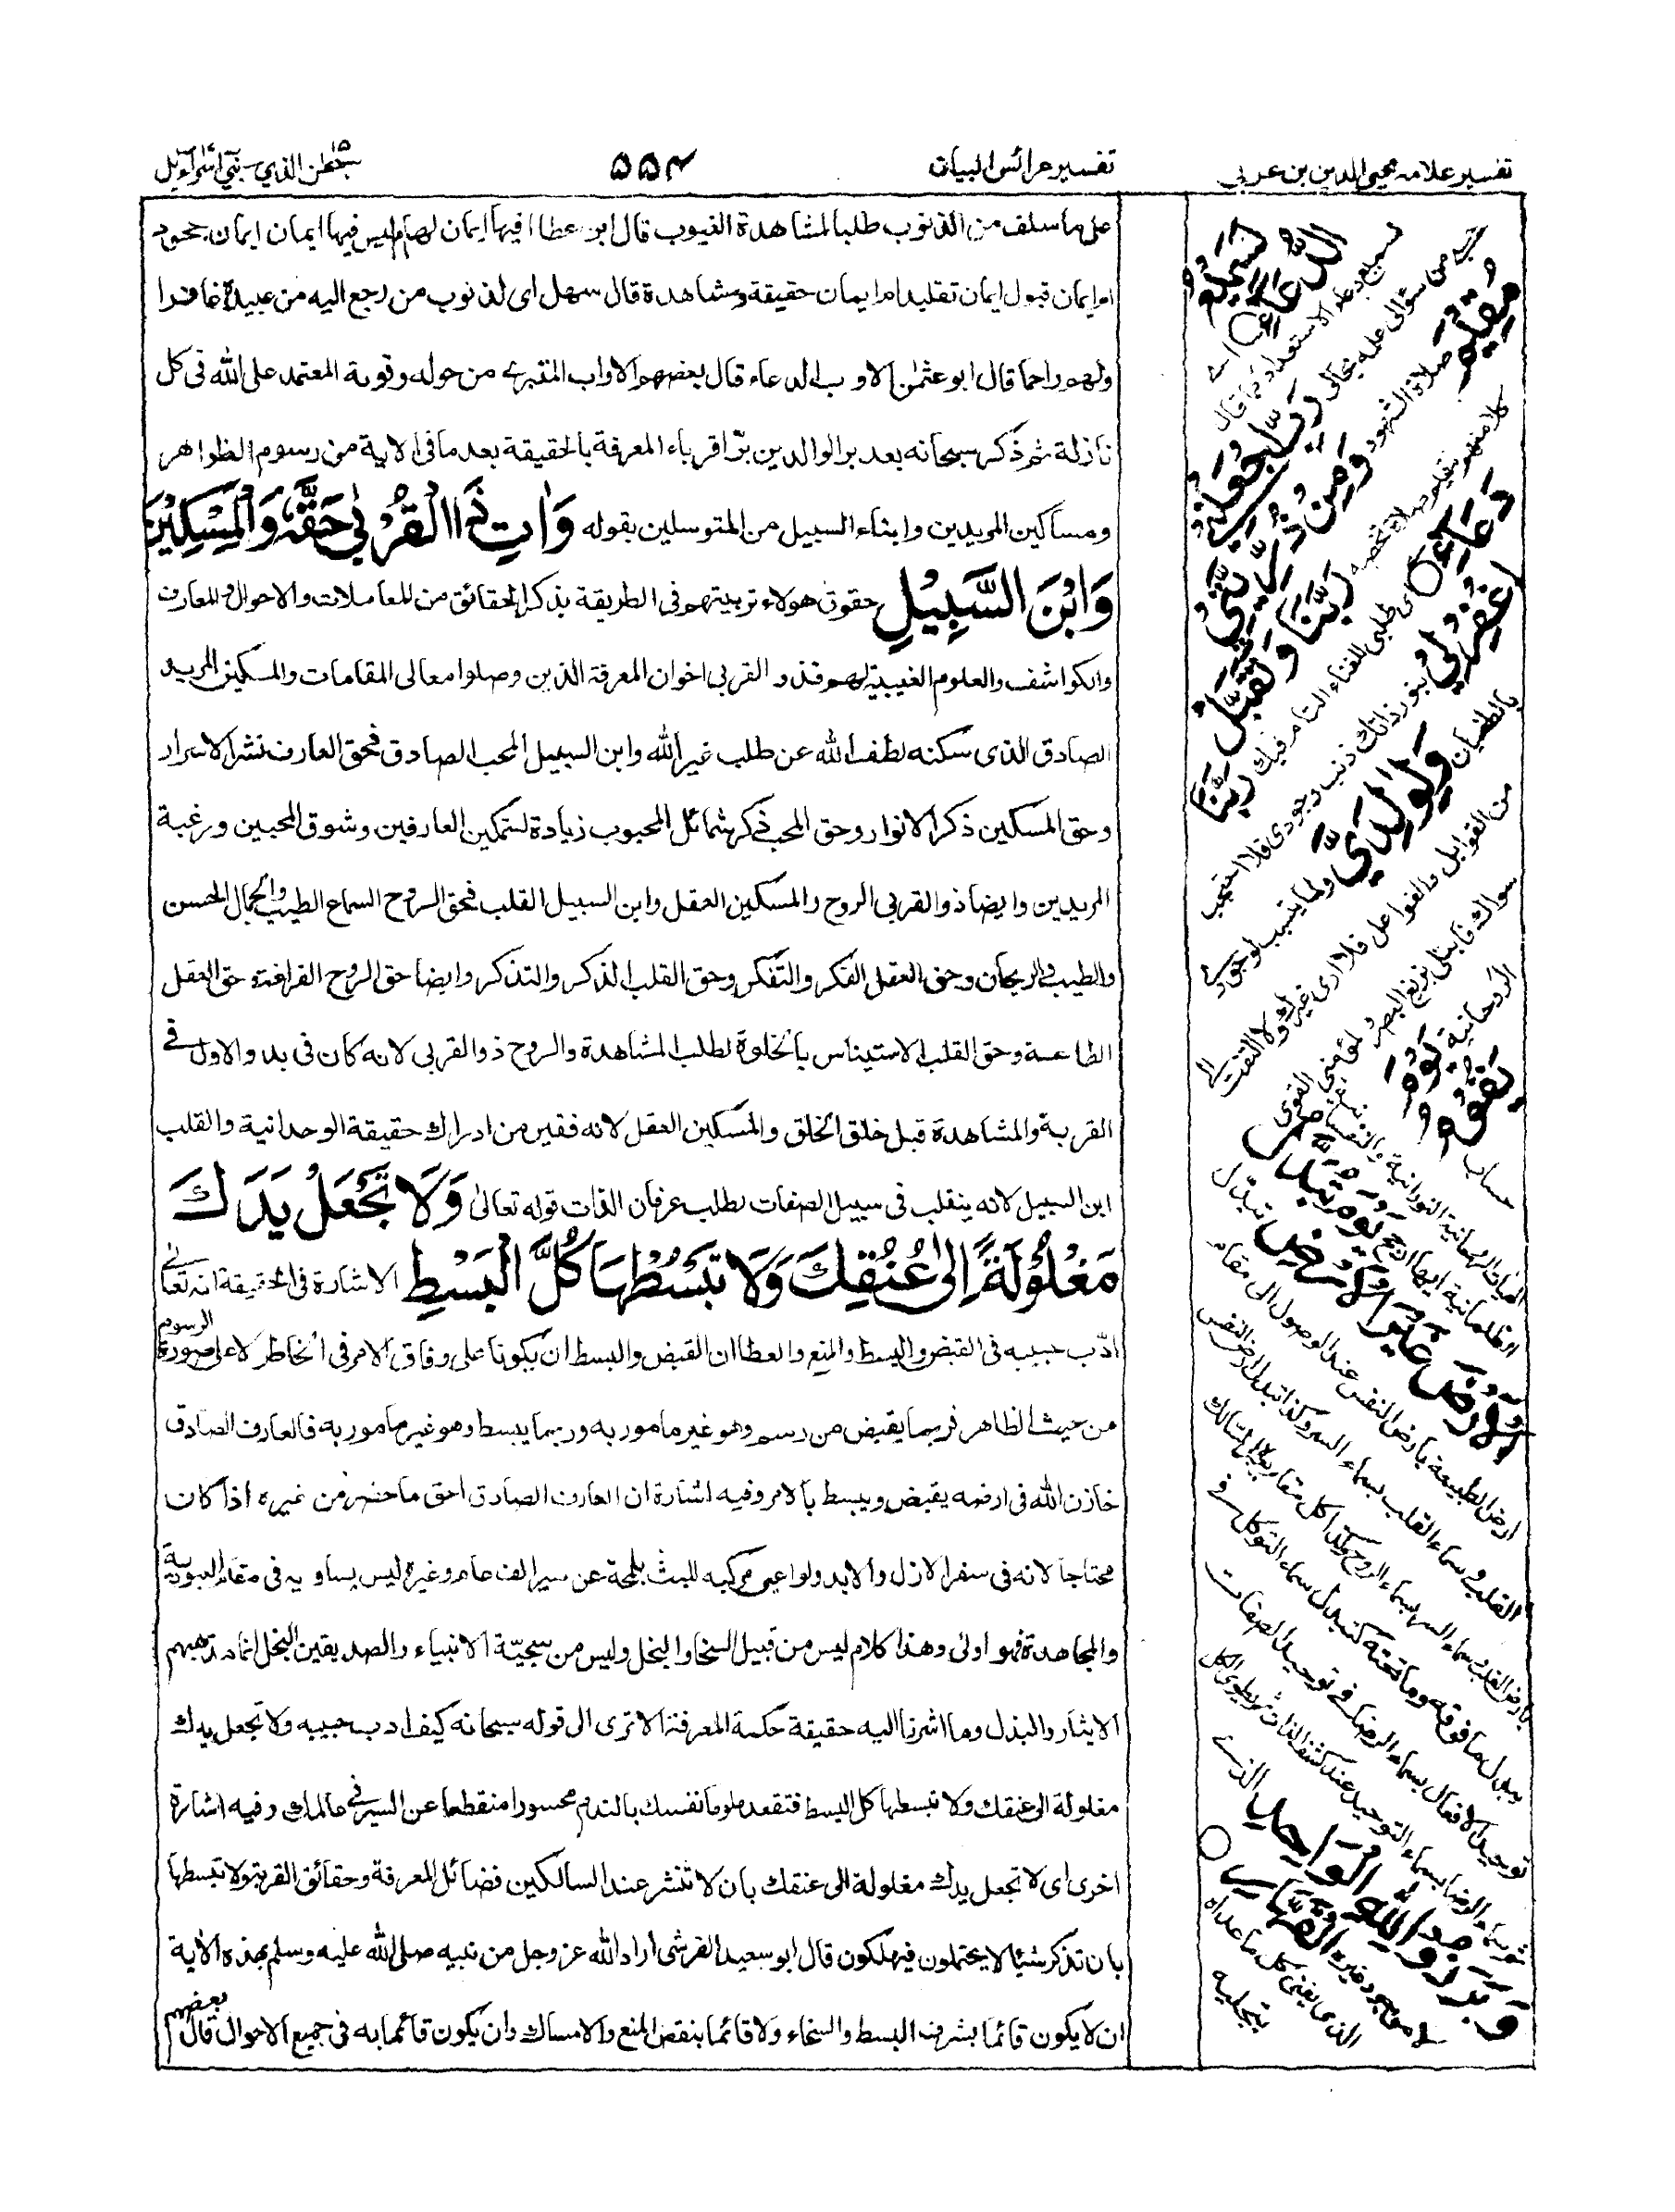 تفسير علامه محيى الدين بن عربي
تفسير عرائس البيان
۵۵۴
سبحٰن الذي بني اسرآئيل
على ما سلف من الذنوب طلبا لمشاهدة الغيوب قال ابن عطا افيها ايمان لهم ام ليس فيها ايمان ايمان جحود
ام ايمان قبول ايمان تقليد ام ايمان حقيقة ومشاهدة قال سهل اى لذنوب من رجع اليه من عبيدة غافرا
ولهم راحما قال ابو عثمٰن الاوب الدعاء قال بعضهم الاواب المتبرى من حوله وقوته المعتمد على الله فى كل
نازلة ثم ذكر سبحانه بعد بر الوالدين برّ اقرباء المعرفة بالحقيقة بعد ما فى الاية من رسوم الظواهر
ومساكين المريدين وابناء السبيل من المتوسلين بقوله وَاٰتِ ذَا الْقُرْبٰى حَقَّهٗ وَالْمِسْكِيْنَ
وَابْنَ السَّبِيْلِ حقوق هولاء تربيتهم فى الطريقة بذكر الحقائق من المعاملات والاحوال والمعارف
والكواشف والعلوم الغيبية لهم فذو القربى اخوان المعرفة الذين وصلوا معالى المقامات والمسكين المريد
الصادق الذى سكنه لطف الله عن طلب غير الله وابن السبيل المحب الصادق فحق العارف نشر الاسرار
وحق المسكين ذكر الانوار وحق المحب ذكر شمائل المحبوب زيادة لتمكين العارفين وشوق المحبين ورغبة
المريدين وايضا ذو القربى الروح والمسكين العقل وابن السبيل القلب فحق الروح السماع الطيب والجمال الحسن
والطيب والريحان وحق العقل الفكر والتفكر وحق القلب الذكر والتذكر وايضا حق الروح الفراغة حق العقل
الطاعة وحق القلب الاستيناس بالخلوة لطلب المشاهدة والروح ذو القربى لانه كان فى بدو الاول فى
القربة والمشاهدة قبل خلق الخلق والمسكين العقل لانه فقير من ادراك حقيقة الوحدانية والقلب
ابن السبيل لانه ينقلب فى سبيل الصفات لطلب عرفان الذات قوله تعالىٰ وَلَا تَجْعَلْ يَدَكَ
مَغْلُوْلَةً اِلٰى عُنُقِكَ وَلَا تَبْسُطْهَا كُلَّ الْبَسْطِ الاشارة فى الحقيقة انه تعالى
ادّب حبيبه فى القبض والبسط والمنع والعطا ان القبض والبسط ان يكونا على وفاق الامر فى الخاطر لا على صورة الرسوم
من حيث الظاهر فربما يقبض من رسم وهو غير مامور به وربما يبسط وهو غير مامور به فالعارف الصادق
خازن الله فى ارضه يقبض ويبسط بالامر وفيه اشارة ان العارف الصادق احق ما حضر من غيره اذا كان
محتاجا لانه فى سفر الازل والابد ولو اعيى مركبه للبث بلمحة عن سير الف عام وغيره ليس يساويه فى مقام العبودية
والمجاهدة فهو اولى وهذا كلام ليس من قبيل السخا والبخل وليس من سجيّة الانبياء والصديقين البخل انما مذهبهم
الايثار والبذل وما اشرنا اليه حقيقة حكمة المعرفة الا ترى الى قوله سبحانه كيف ادب حبيبه ولا تجعل يدك
مغلولة الى عنقك ولا تبسطها كل البسط فتقعد ملوما نفسك بالندم محسورا منقطعا عن السير فى عالمك وفيه اشارة
اخرى اى لا تجعل يدك مغلولة الى عنقك بان لا تنشر عند السالكين فضائل المعرفة وحقائق القربة ولا تبسطها
بان تذكر شيئا لا يحتملون فيهلكون قال ابو سعيد القرشى اراد الله عز وجل من نبيه صلى الله عليه وسلم بهذه الاية
ان لا يكون قائما بشرف البسط والسخاء ولا قائما بنقص المنع والامساك وان يكون قائما به فى جميع الاحوال قال بعضهم
لَسَمِيْعُ الدُّعَآءِ اى
لسميع دعاء الاستعداد كما قال
حسبى من سؤالى علمه بحالى رَبِّ اجْعَلْنِيْ
مُقِيْمَ صلاة الشهود وَمِنْ ذُرِّيَّتِيْ
كلا منهم مقيم صلاة تخصه رَبَّنَا وَتَقَبَّلْ
دُعَآءِ اى طلبى للفناء التام فيك رَبَّنَا
اغْفِرْ لِيْ بنور ذاتك ذنب وجودى فلا احتجب
بالطغيان وَلِوَالِدَيَّ ولما يتسبب لوجودى
من القوابل والفواعل فلا ارى غيرك ولا التفت الى
سواك فابتلى بزيغ البصر
الروحانية يَوْمَ
يَقُوْمُ
حساب
يَوْمَ تُبَدَّلُ الْاَرْضُ غَيْرَ الْاَرْضِ تبدل
ارض الطبيعة بارض النفس عند الوصول الى مقام
القلب وسماء القلب بسماء السر وكذا تبدل ارض النفس
بارض القلب وسماء السر بسماء الروح وكذا كل مقام
يبدل ما فوقه وما تحته كتبدل سماء التوكل فى
توحيد الافعال بسماء الرضا فى توحيد الصفات
ثم سماء الرضا بسماء التوحيد عند كشف الذات ثم يطوى الكل
وَبَرَزُوْا لِلّٰهِ الْوَاحِدِ الذى
لا موجود غيره الْقَهَّارِ
الذى يفنى كل ما عداه
بتجليه